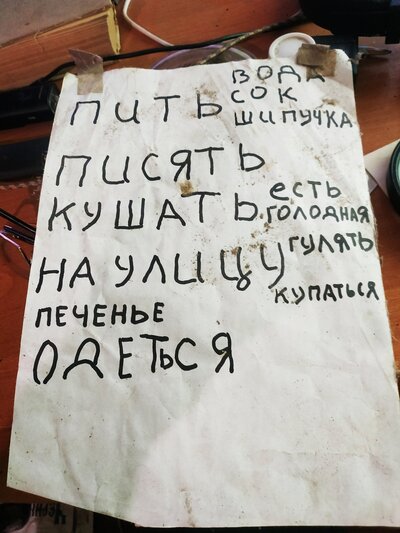 ПИТЬ ВОДА
СОК
ШИПУЧКА
ПИСЯТЬ
КУШАТЬ есть
ГОЛОДНАЯ
НА УЛИЦУ ГУЛЯТЬ
КУПАТЬСЯ
ПЕЧЕНЬЕ
ОДЕТЬСЯ